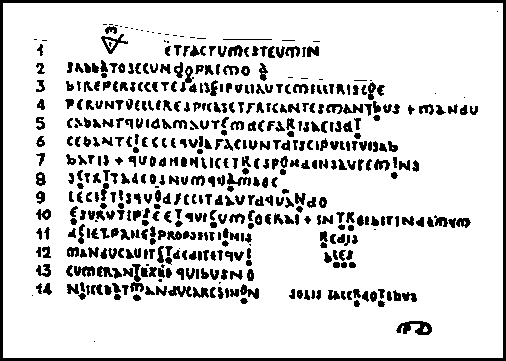 1 ETFACTUMESTEUMIN
2 SABBATOSECUNDOPRIMO A
3 BIREPERSCCETESDISCIPULIAUTEMILLIRISCOE
4 PERUNTVELLERESPICASETFRICANTESMANTBUS + MANDU
5 CABANTQUIDAMAUTEMDEFARISAEISDT
6 CEBANTEIECCEQUIAFACIUNTDTSCIPULITVISAB
7 BATIS + QUODNONLICETRESPONDENSAUTEMINS
8 SETXTTADEOSNUMQUAMHOC
9 LECISTISQUODFECITDAUTDQUANDO
10 ESURUTIPSEETQUICUMEOERAI + INTROIBITINDAMUM
11 DEIETPANESPROPOSITIONIS REDIS
12 MANDUCAUITETDEDITETQUI BLES
13 CUMERANTEXEO QUIBUSNO
14 NLICEBATMANDUCARESINON SOLIS SACERDOTIBUS
PD